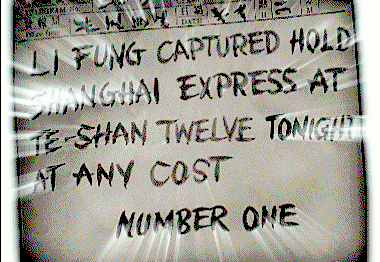 LI FUNG CAPTURED HOLD
SHANGHAI EXPRESS AT
TE-SHAN TWELVE TONIGHT
AT ANY COST
NUMBER ONE